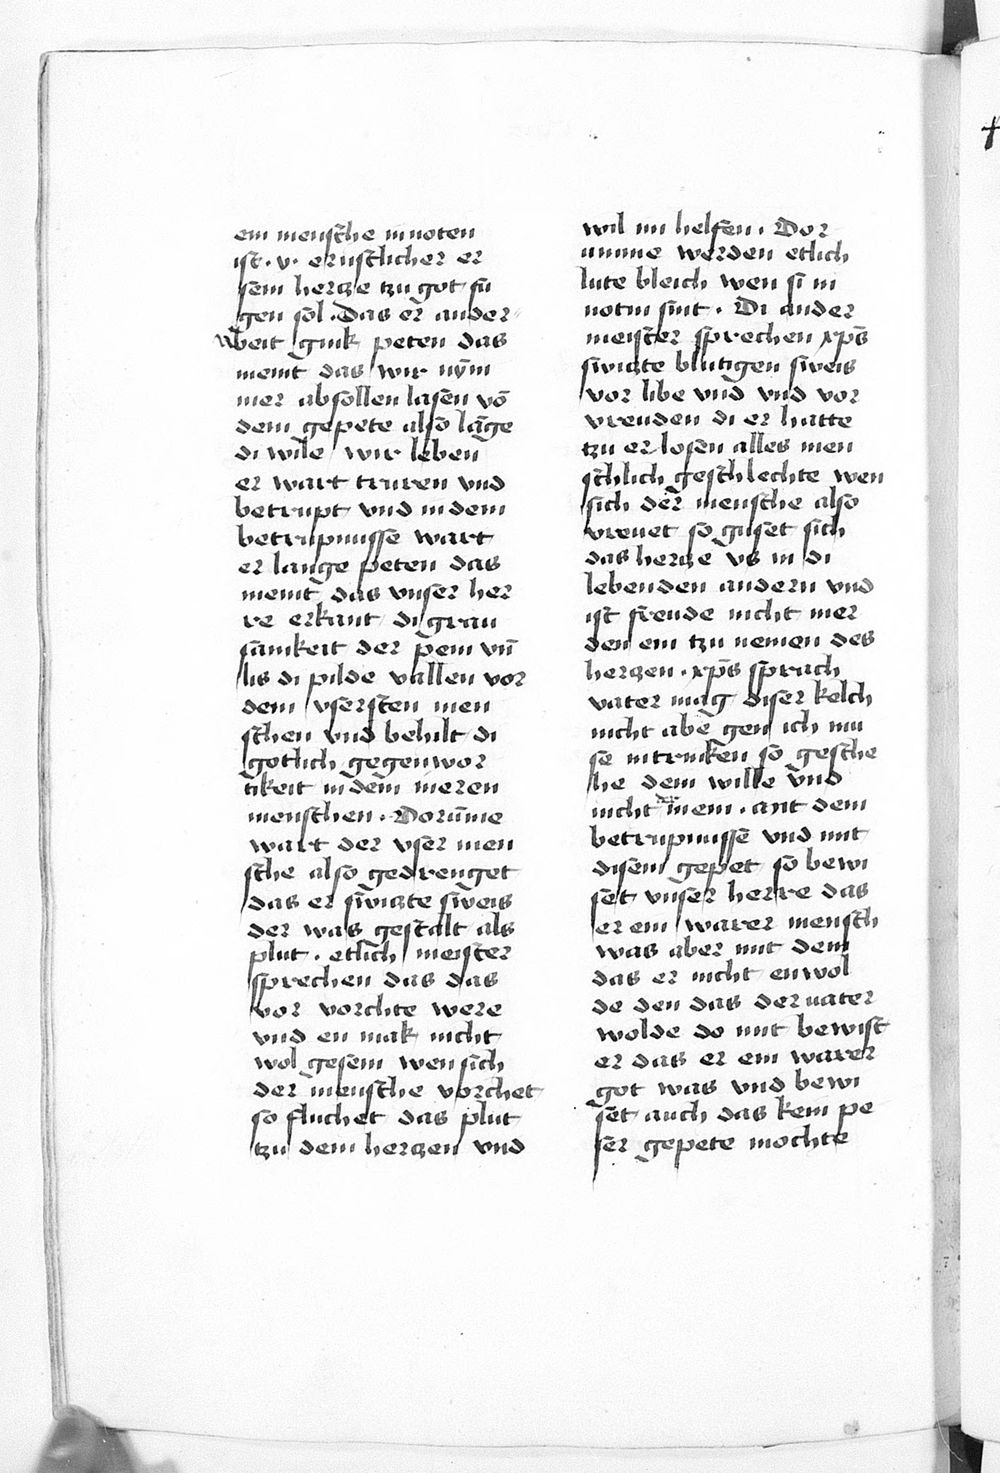 ein mensche in noten
ist . v . ernstlicher er
sein hercze tzu got fu
gen sol . Das er ander
weit gink peten das
meint das wir nym
mer absollen lasen vō
dem gepete also lāge
di wile wir leben
er wart truren vnd
betrupt vnd in dem
betrupnusse wart
er lange peten das
meint das vnser her
re erkant di grau
samkeit der pein vn̄
lis di pilde vallen vor
dem vsersten men
schen vnd behilt di
gotlich gegenwor
tikeit in dem meren
menschen . Dorūme
wart der vser men
sche also gedrenget
das er swiczte sweis
der was gestalt als
plut . etlich meister
sprechen das das
vor vorchte were
vnd en mak nicht
wol gesein wen sich
der mensche vorchet
so fluchet das plut
tzu dem herczen vnd
wil im helfen . Dor
umme werden etlich
lute bleich wen si in
notin sint . Di ander
meister sprechen xp̄s
swiczte blutigen sweis
vor libe vnd vnd vor
vreuden di er hatte
tzu erlosen alles men
schlich geschlechte wen
sich der mensche also
vreuet so guset sich
das hercze vs in di
lebenden andern vnd
ist freude nicht mer
den ein tzu nemen des
herczen . xp̄s sprach
vater mag diser kelch
nicht abe gen ich mu
se in trinken so gesche
he dein wille vnd
nicht mein . mit dem
betrupnusse vnd mit
disem gepet so bewi
set vnser herre das
er ein warer mensch
was aber mit dem
das er nicht enwol
de den das der uater
wolde do mit bewist
er das er ein warer
got was vnd bewi
set auch das kein pe
ser gepete mochte